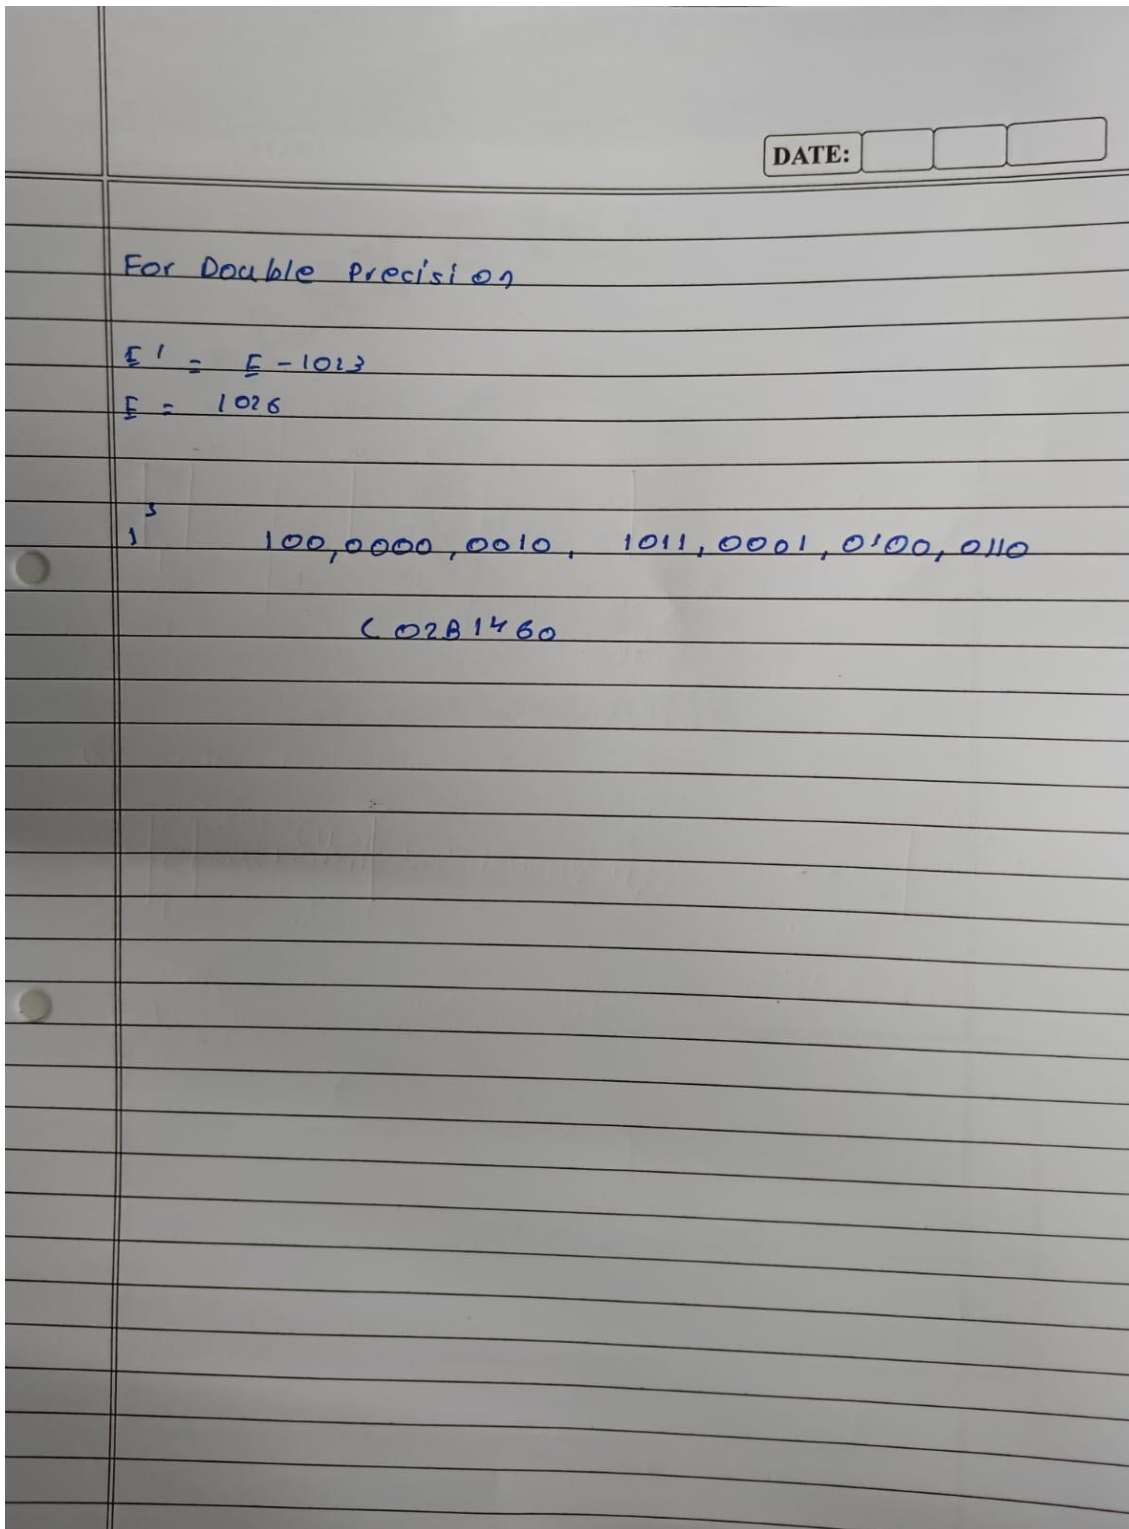 DATE:
For Double Precision
E' = E - 1023
E = 1026
1 s 100,0000,0010, 1011,0001,0100,0110
C02B1460